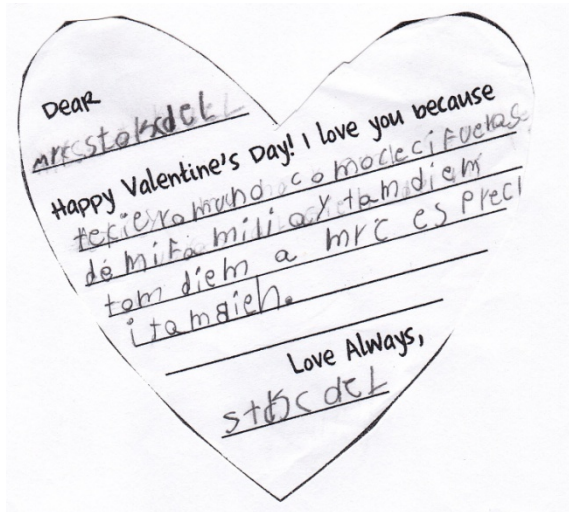 Dear
mrcstoksdcLL
Happy Valentine's Day! I love you because
tekieromuno comodecifueras
démifa miliay tamdiem
tom diem a mrc es preci
itamdieh.
Love Always,
stoksdcL